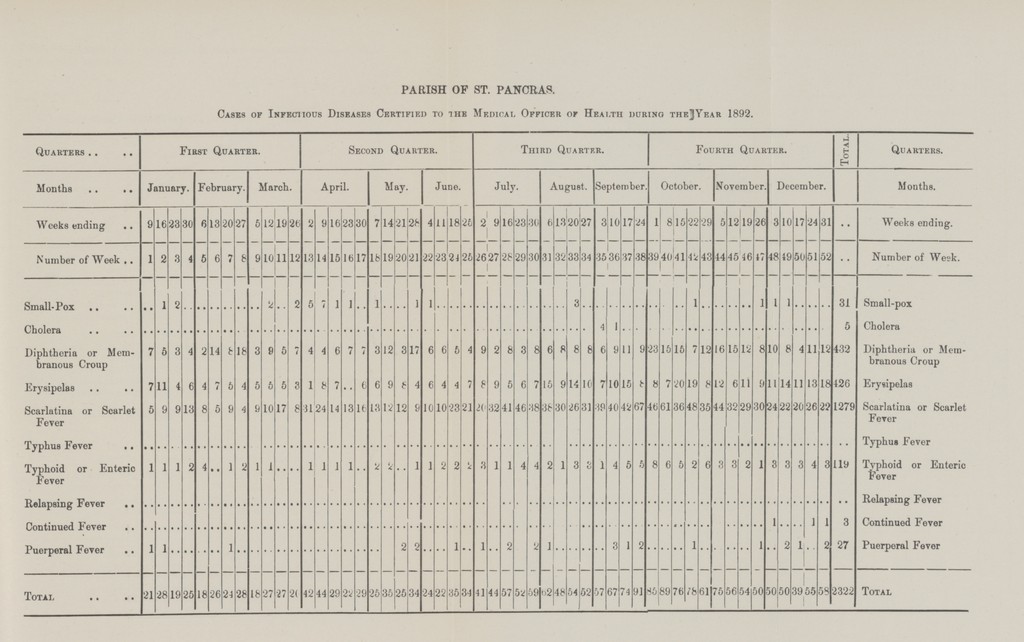 PARISH OF ST. PANCRAS.
CASES OF INFECTIOUS DISEASES CERTIFIED TO THE MEDICAL OFFICER OF HEALTH DURING THE YEAR 1892.
QUARTERS .. .. FIRST QUARTER. SECOND QUARTER. THIRD QUARTER. FOURTH QUARTER. TOTAL. QUARTERS.
Months .. .. January. February. March. April. May. June. July. August. September. October. November. December. Months.
Weeks ending .. 9 16 23 30 6 13 20 27 5 12 19 26 2 9 16 23 30 7 14 21 28 4 11 18 25 2 9 16 23 30 6 13 20 27 3 10 17 24 1 8 15 22 29 5 12 19 26 3 10 17 24 31 .. Weeks ending.
Number of Week .. 1 2 3 4 5 6 7 8 9 10 11 12 13 14 15 16 17 18 19 20 21 22 23 24 25 26 27 28 29 30 31 32 33 34 35 36 37 38 39 40 41 42 43 44 45 46 47 48 49 50 51 52 .. Number of Week.
Small-Pox .. .. .. 1 2 .. .. .. .. .. .. 2 .. 2 5 7 1 1 .. 1 .. .. 1 1 .. .. .. .. .. .. .. .. .. .. 3 .. .. .. .. .. .. .. .. 1 .. .. .. .. 1 1 1 .. .. .. 31 Small-pox
Cholera .. .. 4 1 5 Cholera
Diphtheria or Mem- 7 5 3 4 2 14 8 18 3 9 5 7 4 4 6 7 7 3 12 3 17 6 6 5 4 9 2 8 3 8 6 8 8 8 6 9 11 9 23 15 15 7 12 16 15 12 8 10 8 4 11 12 432 Diphtheria or Mem-
branous Croup branous Croup
Erysipelas .. .. 7 11 4 6 4 7 5 4 5 5 5 3 1 8 7 .. 6 6 9 8 4 6 4 4 7 8 9 5 6 7 15 9 14 10 7 10 15 8 8 7 20 19 8 12 6 11 9 11 14 11 13 18 426 Erysipelas
Scarlatina or Scarlet 5 9 9 13 8 5 9 4 9 10 17 8 31 24 14 13 16 13 12 12 9 10 10 23 21 20 32 41 46 38 38 30 26 31 39 40 42 67 46 61 36 48 35 44 32 29 30 24 22 20 26 22 1279 Scarlatina or Scarlet
Fever Fever
Typhus Fever .. .. Typhus Fever
Typhoid or Enteric 1 1 1 2 4 .. 1 2 1 1 .. .. 1 1 1 1 .. .. 2 2 .. 1 1 2 2 2 3 1 1 4 4 2 1 3 3 1 4 5 5 8 6 5 2 6 3 3 2 1 3 3 3 4 3 119 Typhoid or Enteric
Fever Fever
Relapsing Fever .. .. Relapsing Fever
Continued Fever .. 1 .. .. 1 1 3 Continued Fever
Puerperal Fever .. 1 1 .. .. .. .. 1 .. 2 2 .. .. 1 .. 1 .. 2 .. 2 1 .. .. .. .. 3 1 2 .. .. .. 1 .. .. .. .. 1 .. 2 1 .. 2 27 Puerperal Fever
TOTAL .. .. 21 28 19 25 18 26 24 28 18 27 27 20 42 44 29 22 29 25 35 25 34 24 22 35 34 41 44 57 52 59 62 48 54 52 57 67 74 91 85 89 76 78 61 75 56 54 50 50 50 39 55 58 2322 TOTAL